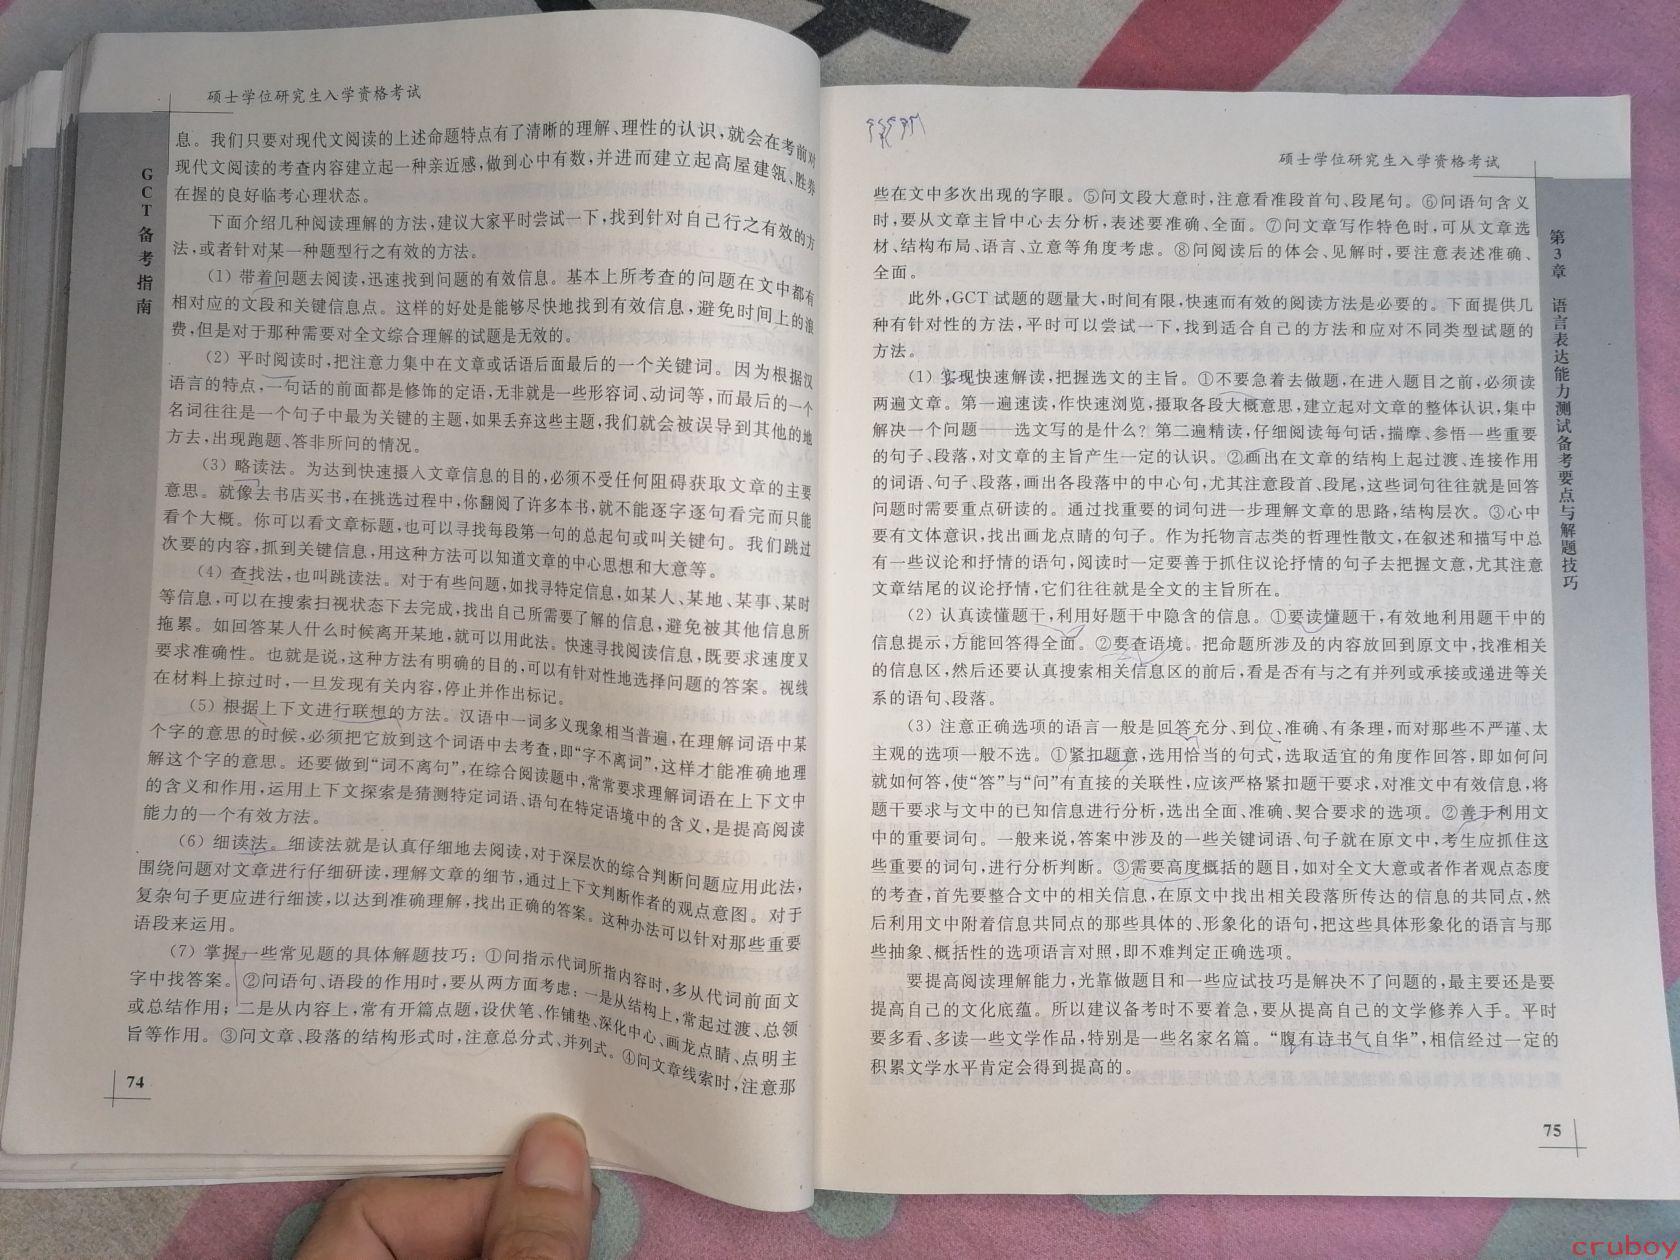 硕士学位研究生入学资格考试
GCT备考指南
息。我们只要对现代文阅读的上述命题特点有了清晰的理解、理性的认识,就会在考前对
现代文阅读的考查内容建立起一种亲近感,做到心中有数,并进而建立起高屋建瓴、胜券
在握的良好临考心理状态。
下面介绍几种阅读理解的方法,建议大家平时尝试一下,找到针对自己行之有效的方
法,或者针对某一种题型行之有效的方法。
(1) 带着问题去阅读,迅速找到问题的有效信息。基本上所考查的问题在文中都有
相对应的文段和关键信息点。这样的好处是能够尽快地找到有效信息,避免时间上的浪
费,但是对于那种需要对全文综合理解的试题是无效的。
(2) 平时阅读时,把注意力集中在文章或话语后面最后的一个关键词。因为根据汉
语言的特点,一句话的前面都是修饰的定语,无非就是一些形容词、动词等,而最后的一个
名词往往是一个句子中最为关键的主题,如果丢弃这些主题,我们就会被误导到其他的地
方去,出现跑题、答非所问的情况。
(3) 略读法。为达到快速摄入文章信息的目的,必须不受任何阻碍获取文章的主要
意思。就像去书店买书,在挑选过程中,你翻阅了许多本书,就不能逐字逐句看完而只能
看个大概。你可以看文章标题,也可以寻找每段第一句的总起句或叫关键句。我们跳过
次要的内容,抓到关键信息,用这种方法可以知道文章的中心思想和大意等。
(4) 查找法,也叫跳读法。对于有些问题,如找寻特定信息,如某人、某地、某事、某时
等信息,可以在搜索扫视状态下去完成,找出自己所需要了解的信息,避免被其他信息所
拖累。如回答某人什么时候离开某地,就可以用此法。快速寻找阅读信息,既要求速度又
要求准确性。也就是说,这种方法有明确的目的,可以有针对性地选择问题的答案。视线
在材料上掠过时,一旦发现有关内容,停止并作出标记。
(5) 根据上下文进行联想的方法。汉语中一词多义现象相当普遍,在理解词语中某
个字的意思的时候,必须把它放到这个词语中去考查,即“字不离词”,这样才能准确地理
解这个字的意思。还要做到“词不离句”,在综合阅读题中,常常要求理解词语在上下文中
的含义和作用,运用上下文探索是猜测特定词语、语句在特定语境中的含义,是提高阅读
能力的一个有效方法。
(6) 细读法。细读法就是认真仔细地去阅读,对于深层次的综合判断问题应用此法,
围绕问题对文章进行仔细研读,理解文章的细节,通过上下文判断作者的观点意图。对于
复杂句子更应进行细读,以达到准确理解,找出正确的答案。这种办法可以针对那些重要
语段来运用。
(7) 掌握一些常见题的具体解题技巧:①问指示代词所指内容时,多从代词前面文
字中找答案。②问语句、语段的作用时,要从两方面考虑:一是从结构上,常起过渡、总领
或总结作用;二是从内容上,常有开篇点题,设伏笔、作铺垫、深化中心、画龙点睛、点明主
旨等作用。③问文章、段落的结构形式时,注意总分式、并列式。④问文章线索时,注意那
74
硕士学位研究生入学资格考试
第3章 语言表达能力测试备考要点与解题技巧
些在文中多次出现的字眼。⑤问文段大意时,注意看准段首句、段尾句。⑥问语句含义
时,要从文章主旨中心去分析,表述要准确、全面。⑦问文章写作特色时,可从文章选
材、结构布局、语言、立意等角度考虑。⑧问阅读后的体会、见解时,要注意表述准确、
全面。
此外,GCT 试题的题量大,时间有限,快速而有效的阅读方法是必要的。下面提供几
种有针对性的方法,平时可以尝试一下,找到适合自己的方法和应对不同类型试题的
方法。
(1) 实现快速解读,把握选文的主旨。①不要急着去做题,在进入题目之前,必须读
两遍文章。第一遍速读,作快速浏览,摄取各段大概意思,建立起对文章的整体认识,集中
解决一个问题——选文写的是什么?第二遍精读,仔细阅读每句话,揣摩、参悟一些重要
的句子、段落,对文章的主旨产生一定的认识。②画出在文章的结构上起过渡、连接作用
的词语、句子、段落,画出各段落中的中心句,尤其注意段首、段尾,这些词句往往就是回答
问题时需要重点研读的。通过找重要的词句进一步理解文章的思路,结构层次。③心中
要有文体意识,找出画龙点睛的句子。作为托物言志类的哲理性散文,在叙述和描写中总
有一些议论和抒情的语句,阅读时一定要善于抓住议论抒情的句子去把握文意,尤其注意
文章结尾的议论抒情,它们往往就是全文的主旨所在。
(2) 认真读懂题干,利用好题干中隐含的信息。①要读懂题干,有效地利用题干中的
信息提示,方能回答得全面。②要查语境。把命题所涉及的内容放回到原文中,找准相关
的信息区,然后还要认真搜索相关信息区的前后,看是否有与之有并列或承接或递进等关
系的语句、段落。
(3) 注意正确选项的语言一般是回答充分、到位、准确、有条理,而对那些不严谨、太
主观的选项一般不选。①紧扣题意,选用恰当的句式,选取适宜的角度作回答,即如何问
就如何答,使“答”与“问”有直接的关联性,应该严格紧扣题干要求,对准文中有效信息,将
题干要求与文中的已知信息进行分析,选出全面、准确、契合要求的选项。②善于利用文
中的重要词句。一般来说,答案中涉及的一些关键词语、句子就在原文中,考生应抓住这
些重要的词句,进行分析判断。③需要高度概括的题目,如对全文大意或者作者观点态度
的考查,首先要整合文中的相关信息,在原文中找出相关段落所传达的信息的共同点,然
后利用文中附着信息共同点的那些具体的、形象化的语句,把这些具体形象化的语言与那
些抽象、概括性的选项语言对照,即不难判定正确选项。
要提高阅读理解能力,光靠做题目和一些应试技巧是解决不了问题的,最主要还是要
提高自己的文化底蕴。所以建议备考时不要着急,要从提高自己的文学修养入手。平时
要多看、多读一些文学作品,特别是一些名家名篇。“腹有诗书气自华”,相信经过一定的
积累文学水平肯定会得到提高的。
75
cruboy